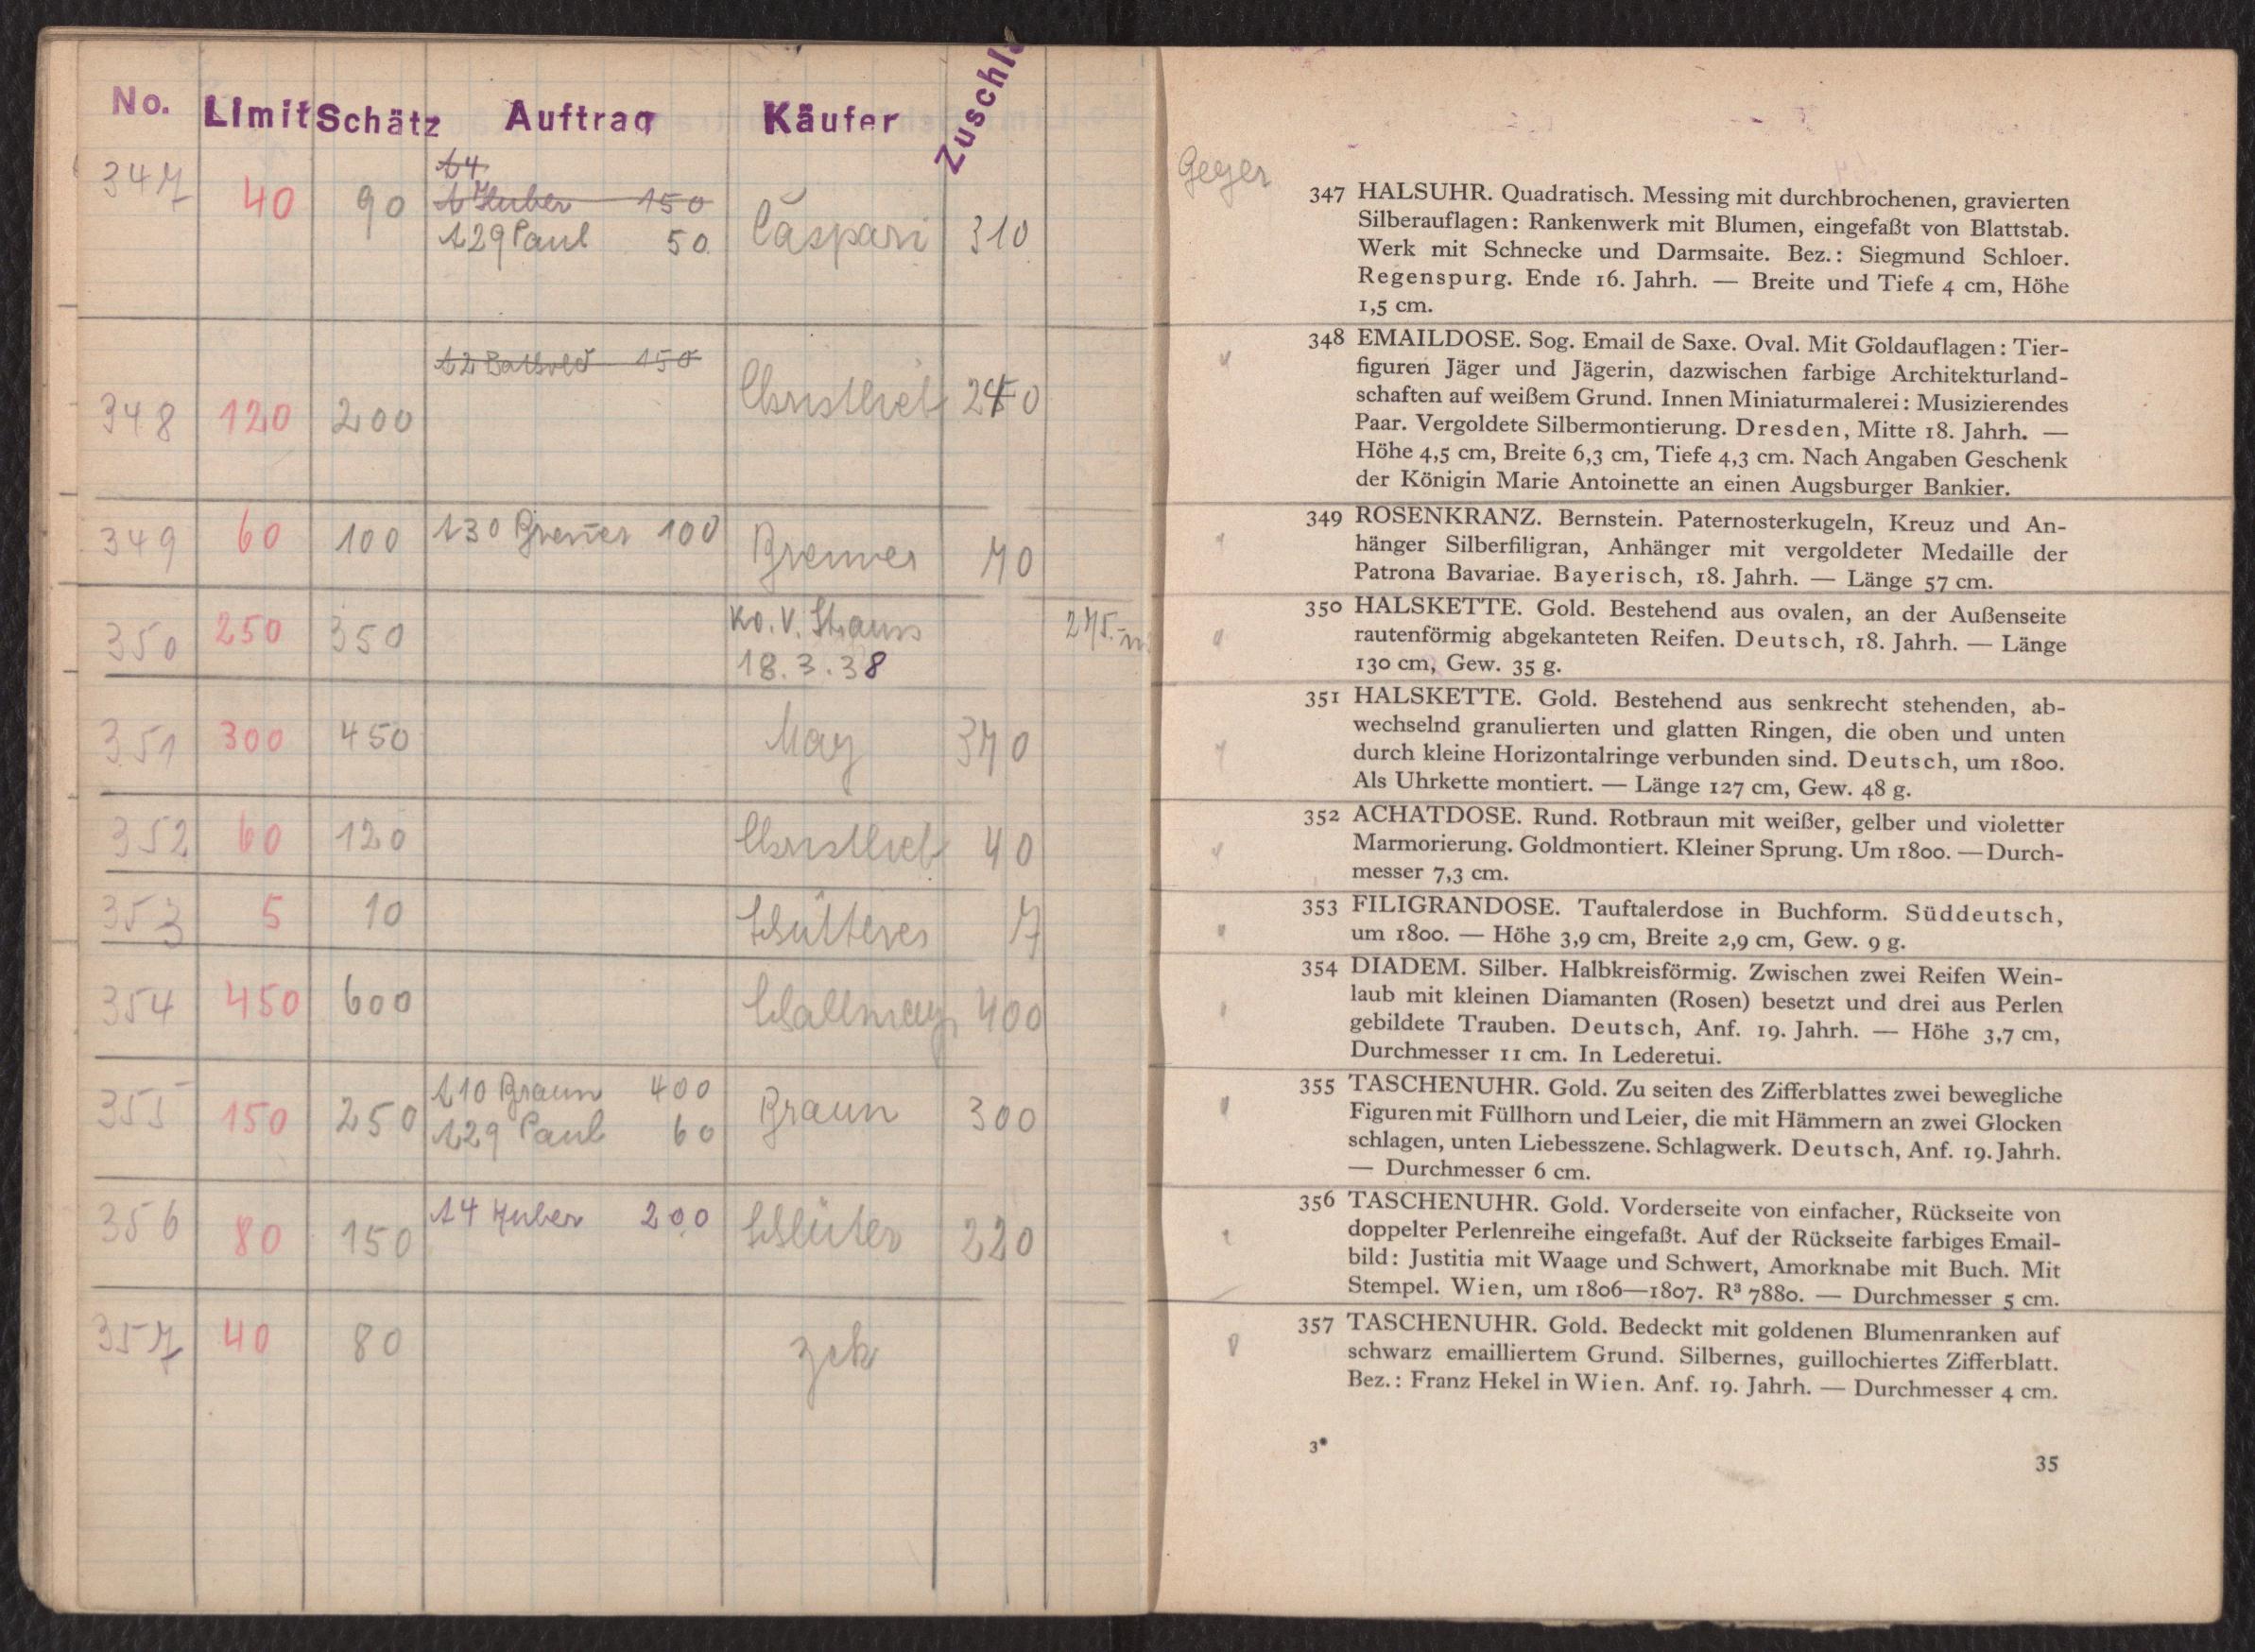 No. Limit Schätz Auftrag Käufer Zuschla
347 40 90 A4
A Huber 150
A29 Paul 50. Caspari 310
A2 150
348 120 200 Christlieb 240
349 60 100 A30 Breñer 100 Brenner 70
350 250 350 Ko. V. Strauss 275.-n
18.3.38
351 300 450 May 370
352 60 120 Christlieb 40
353 5 10 7
354 450 600 400
355 150 250 A10 Braun 400 Braun 300
A29 Paul 60
356 80 150 A4 Huber 200 Schlüter 220
357 40 80 zck
Geyer
347 HALSUHR. Quadratisch. Messing mit durchbrochenen, gravierten
Silberauflagen: Rankenwerk mit Blumen, eingefaßt von Blattstab.
Werk mit Schnecke und Darmsaite. Bez.: Siegmund Schloer.
Regenspurg. Ende 16. Jahrh. — Breite und Tiefe 4 cm, Höhe
1,5 cm.
348 EMAILDOSE. Sog. Email de Saxe. Oval. Mit Goldauflagen: Tier-
figuren Jäger und Jägerin, dazwischen farbige Architekturland-
schaften auf weißem Grund. Innen Miniaturmalerei: Musizierendes
Paar. Vergoldete Silbermontierung. Dresden, Mitte 18. Jahrh. —
Höhe 4,5 cm, Breite 6,3 cm, Tiefe 4,3 cm. Nach Angaben Geschenk
der Königin Marie Antoinette an einen Augsburger Bankier.
349 ROSENKRANZ. Bernstein. Paternosterkugeln, Kreuz und An-
hänger Silberfiligran, Anhänger mit vergoldeter Medaille der
Patrona Bavariae. Bayerisch, 18. Jahrh. — Länge 57 cm.
350 HALSKETTE. Gold. Bestehend aus ovalen, an der Außenseite
rautenförmig abgekanteten Reifen. Deutsch, 18. Jahrh. — Länge
130 cm, Gew. 35 g.
351 HALSKETTE. Gold. Bestehend aus senkrecht stehenden, ab-
wechselnd granulierten und glatten Ringen, die oben und unten
durch kleine Horizontalringe verbunden sind. Deutsch, um 1800.
Als Uhrkette montiert. — Länge 127 cm, Gew. 48 g.
352 ACHATDOSE. Rund. Rotbraun mit weißer, gelber und violetter
Marmorierung. Goldmontiert. Kleiner Sprung. Um 1800. — Durch-
messer 7,3 cm.
353 FILIGRANDOSE. Tauftalerdose in Buchform. Süddeutsch,
um 1800. — Höhe 3,9 cm, Breite 2,9 cm, Gew. 9 g.
354 DIADEM. Silber. Halbkreisförmig. Zwischen zwei Reifen Wein-
laub mit kleinen Diamanten (Rosen) besetzt und drei aus Perlen
gebildete Trauben. Deutsch, Anf. 19. Jahrh. — Höhe 3,7 cm,
Durchmesser 11 cm. In Lederetui.
355 TASCHENUHR. Gold. Zu seiten des Zifferblattes zwei bewegliche
Figuren mit Füllhorn und Leier, die mit Hämmern an zwei Glocken
schlagen, unten Liebesszene. Schlagwerk. Deutsch, Anf. 19. Jahrh.
— Durchmesser 6 cm.
356 TASCHENUHR. Gold. Vorderseite von einfacher, Rückseite von
doppelter Perlenreihe eingefaßt. Auf der Rückseite farbiges Email-
bild: Justitia mit Waage und Schwert, Amorknabe mit Buch. Mit
Stempel. Wien, um 1806—1807. R³ 7880. — Durchmesser 5 cm.
357 TASCHENUHR. Gold. Bedeckt mit goldenen Blumenranken auf
schwarz emailliertem Grund. Silbernes, guillochiertes Zifferblatt.
Bez.: Franz Hekel in Wien. Anf. 19. Jahrh. — Durchmesser 4 cm.
3*
35